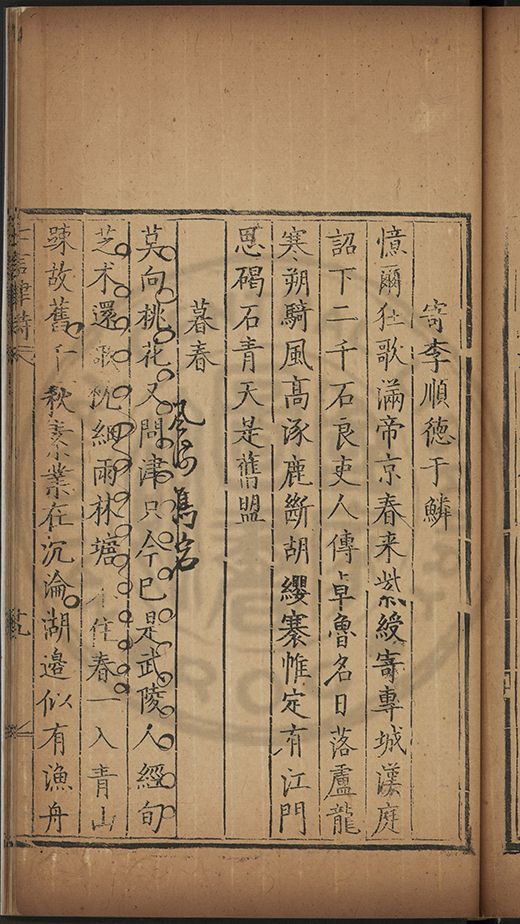 寄李順德于鱗
憶爾狂歌滿帝京春来紫綬寄專城漢庭
詔下二千石良吏人傳卓魯名日落盧龍
寒朔騎風高涿鹿斷胡纓褰帷定有江門
思碣石青天是舊盟
暮春
莫向桃花又問津只今已是武陵人經旬
芝术還歌枕細雨林塘不住春一入青山
踈故舊千秋業在沉淪湖邊似有漁舟
七言律詩